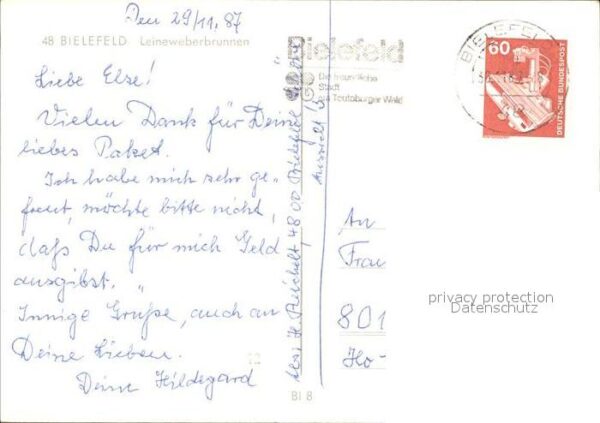 Den 29/11.87
48 BIELEFELD Leineweberbrunnen
Liebe Else!
Vielen Dank für Deine
liebes Paket.
Ich habe mich sehr ge-
freut, möchte bitte nicht,
daß Du für mich Geld
ausgibst.
Innige Grüße, auch an
Deine Lieben.
Deine Hildegard
Abs; H. Reichelt, 4800 Bielefeld
Bielefeld
Die freundliche
Stadt
am Teutoburger Wald
BIELEFELD
60
DEUTSCHE BUNDESPOST
An
Frau
801
Ho-
BI 8
privacy protection
Datenschutz